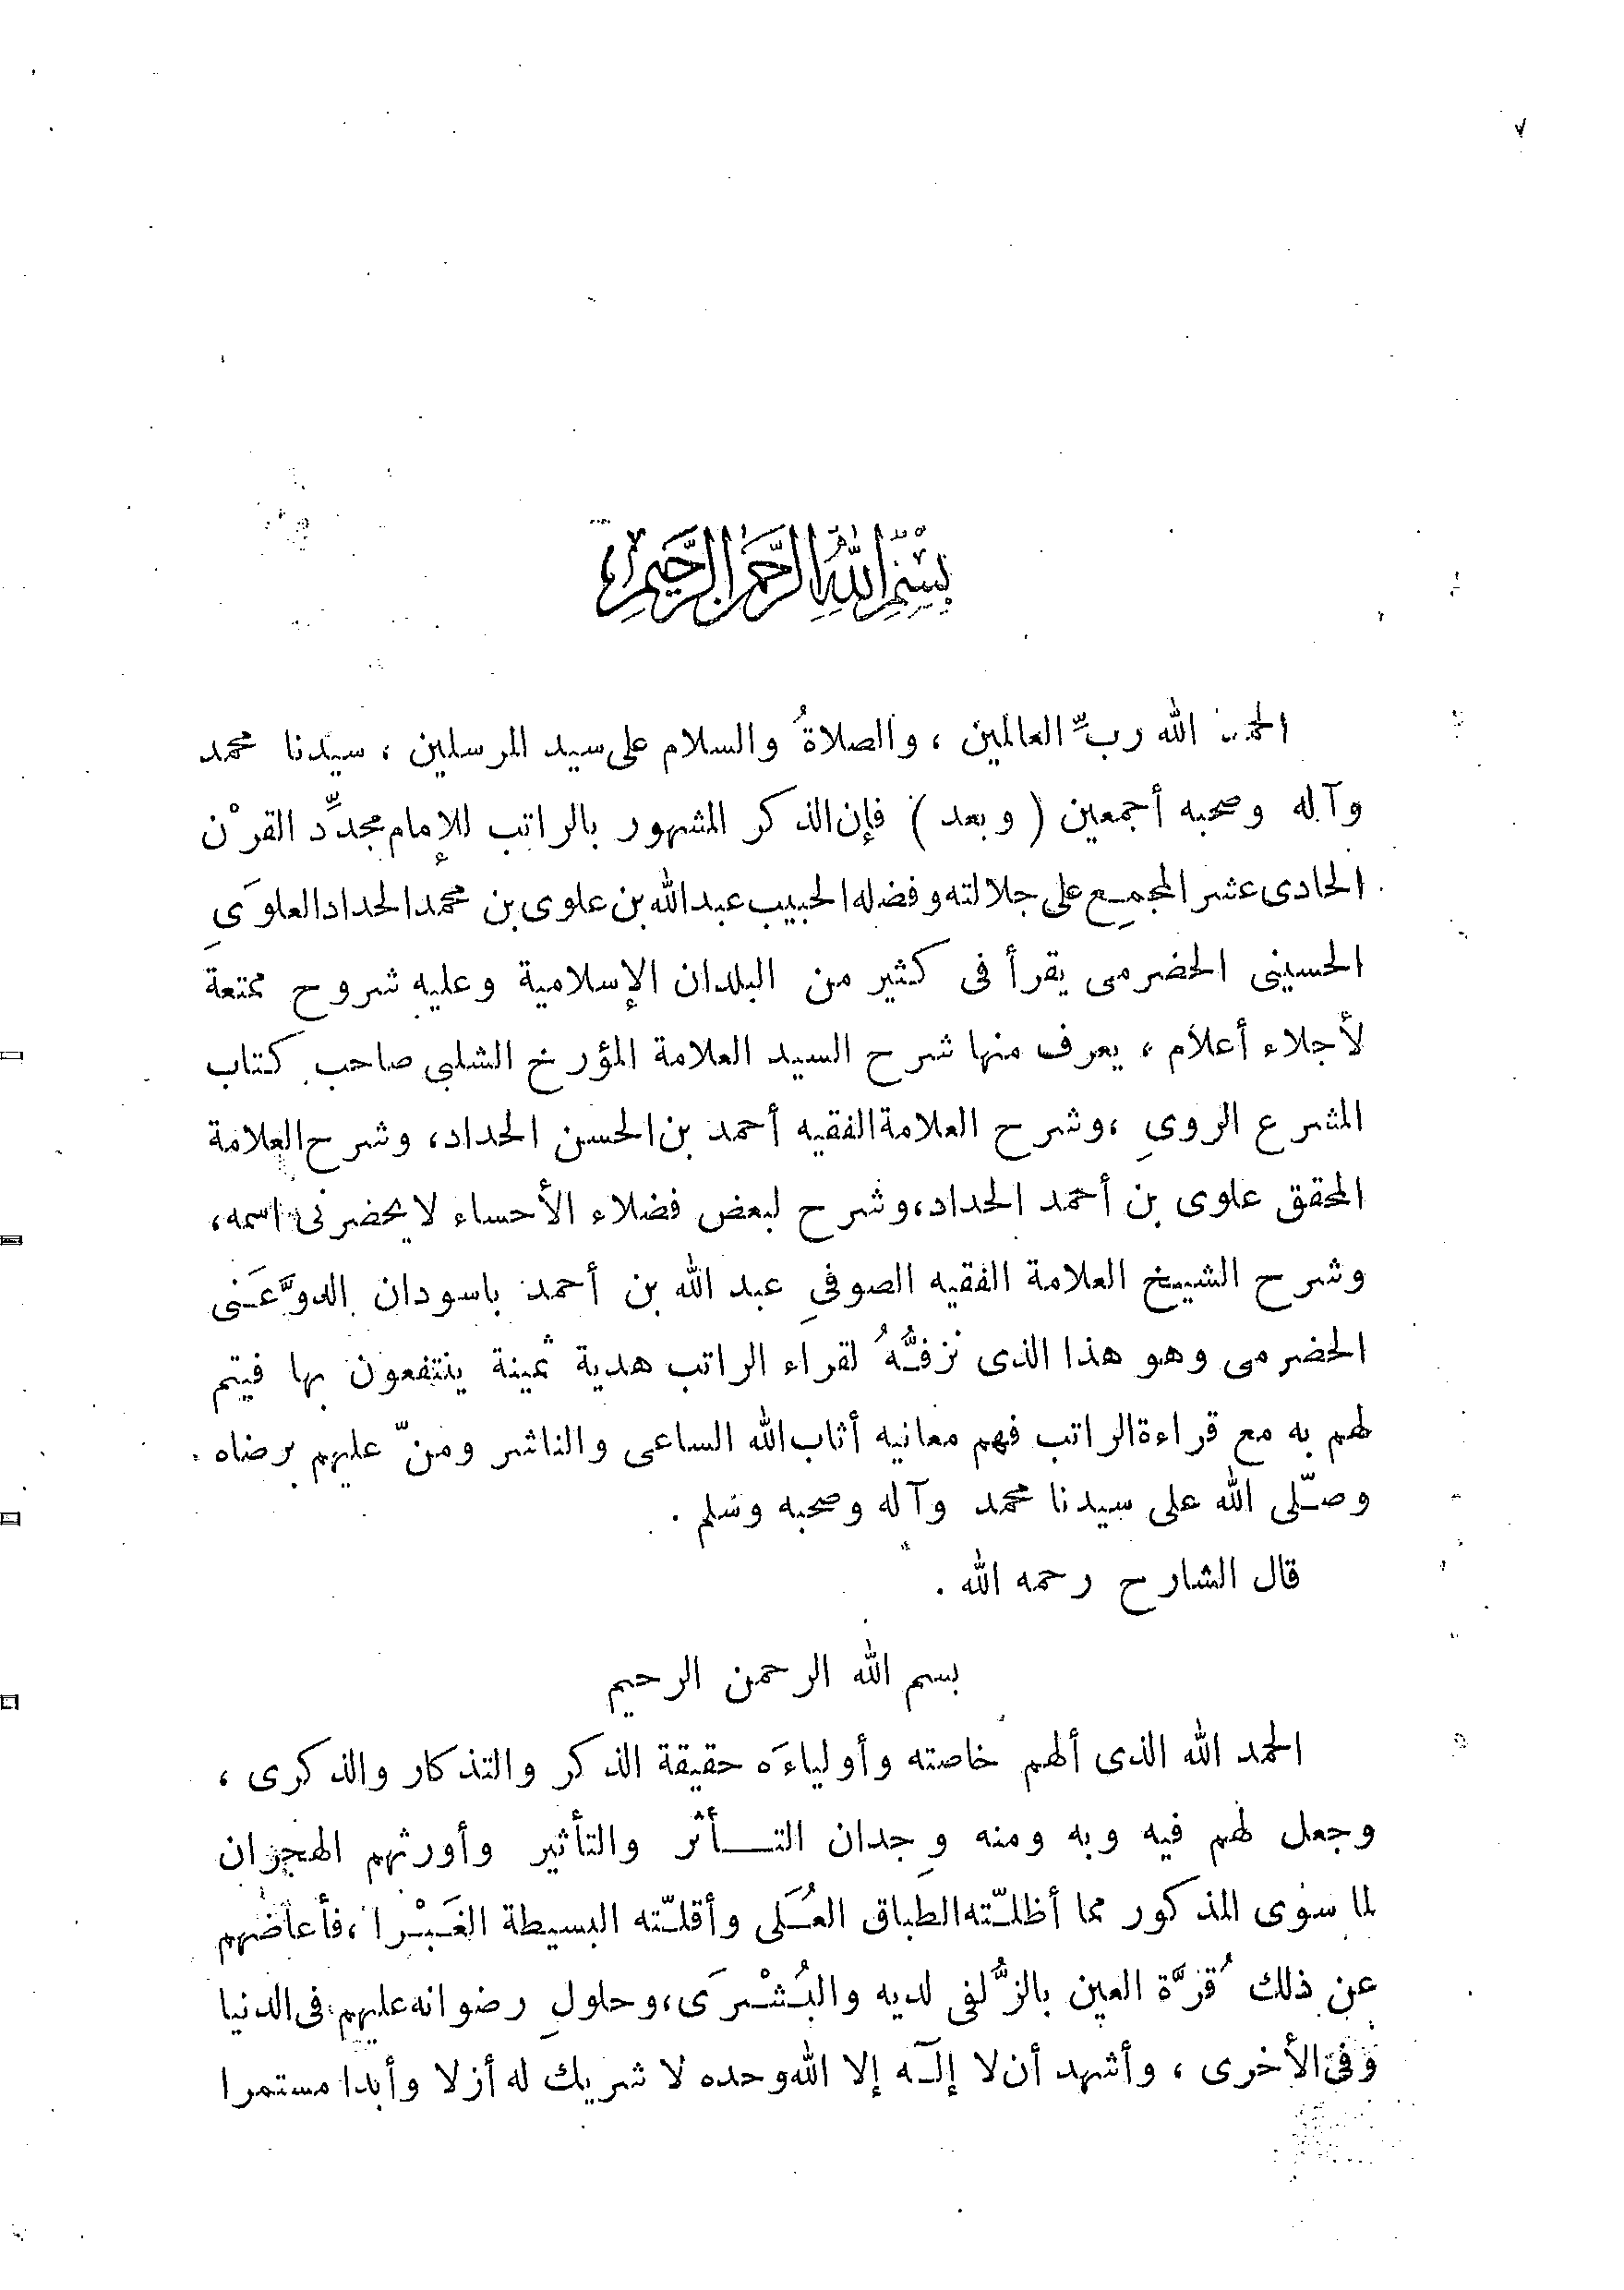 ٧
بسم الله الرحمن الرحيم
الحمد لله ربِّ العالمين ، والصلاةُ والسلام على سيد المرسلين ، سيدنا محمد
وآله وصحبه أجمعين ( وبعد ) فإن الذكر المشهور بالراتب للإمام مجدِّد القرْن
الحادى عشر المجمِع على جلالته وفضله الحبيب عبد الله بن علوى بن محمد الحداد العلوَىِ
الحسينى الحضرمى يقرأ فى كثير من البلدان الإسلامية وعليه شروح ممتعة
لأجلاء أعلام ، يعرف منها شرح السيد العلامة المؤرخ الشلبى صاحب كتاب
المشرع الروىِ ، وشرح العلامة الفقيه أحمد بن الحسن الحداد ، وشرح العلامة
المحقق علوى بن أحمد الحداد ، وشرح لبعض فضلاء الأحساء لا يحضرنى اسمه ،
وشرح الشيخ العلامة الفقيه الصوفىِ عبد الله بن أحمد باسودان الدوَّعَنى
الحضرمى وهو هذا الذى نزفُّهُ لقراء الراتب هدية ثمينة ينتفعون بها فيتم
لهم به مع قراءة الراتب فهم معانيه أثاب الله الساعى والناشر ومنّ عليهم برضاه .
وصلّى الله على سيدنا محمد وآله وصحبه وسلم .
قال الشارح رحمه الله .
بسم الله الرحمن الرحيم
الحمد لله الذى ألهم خاصته وأولياءَه حقيقة الذكر والتذكار والذكرى ،
وجعل لهم فيه وبه ومنه وِجدان التـأثر والتأثير وأورثهم الهجران
لما سوى المذكور مما أظلـّته الطباق العُـلَى وأقلـّته البسيطة الغَـبْـرا ، فأعاضهم
عن ذلك قُرَّة العين بالزُّلفى لديه والبُـشْـرَى ، وحلولِ رضوانه عليهم فى الدنيا
وفى الأخرى ، وأشهد أن لا إلـٰه إلا الله وحده لا شريك له أزلا وأبدا مستمرا